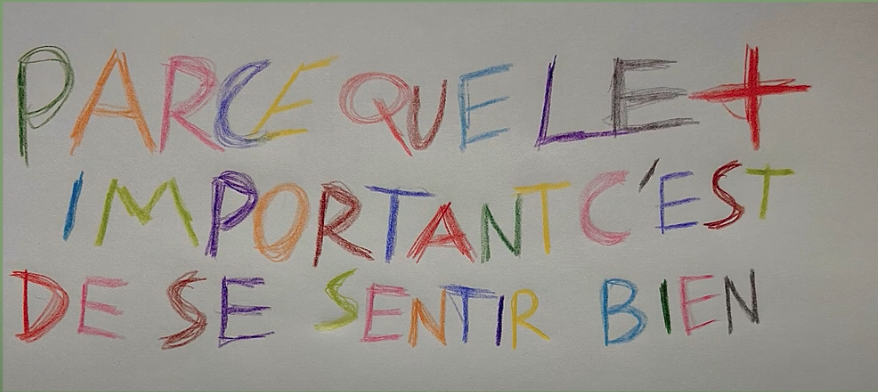 PARCE QUE LE +
IMPORTANT C'EST
DE SE SENTIR BIEN